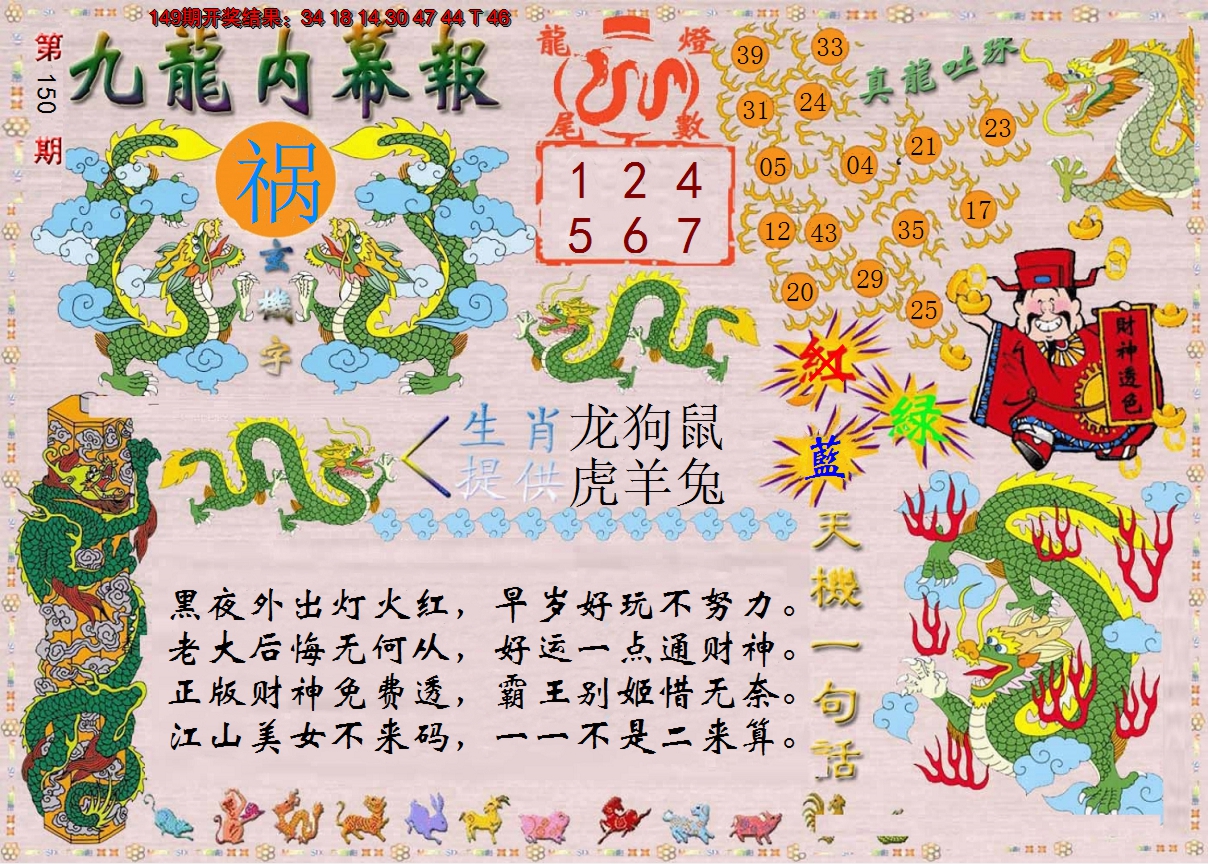 149期开奖结果：34 18 14 30 47 44 T 46
第150期
九龍内幕報
祸
玄機字
龍燈
尾數
1 2 4
5 6 7
真龍吐珠
39 33
31 24
21 23
05 04
17
12 43 35
29
20 25
財神透色
紅
綠
藍
生肖 龙狗鼠
提供 虎羊兔
天機一句话
黑夜外出灯火红，早岁好玩不努力。
老大后悔无何从，好运一点通财神。
正版财神免费透，霸王别姬惜无奈。
江山美女不来码，一一不是二来算。